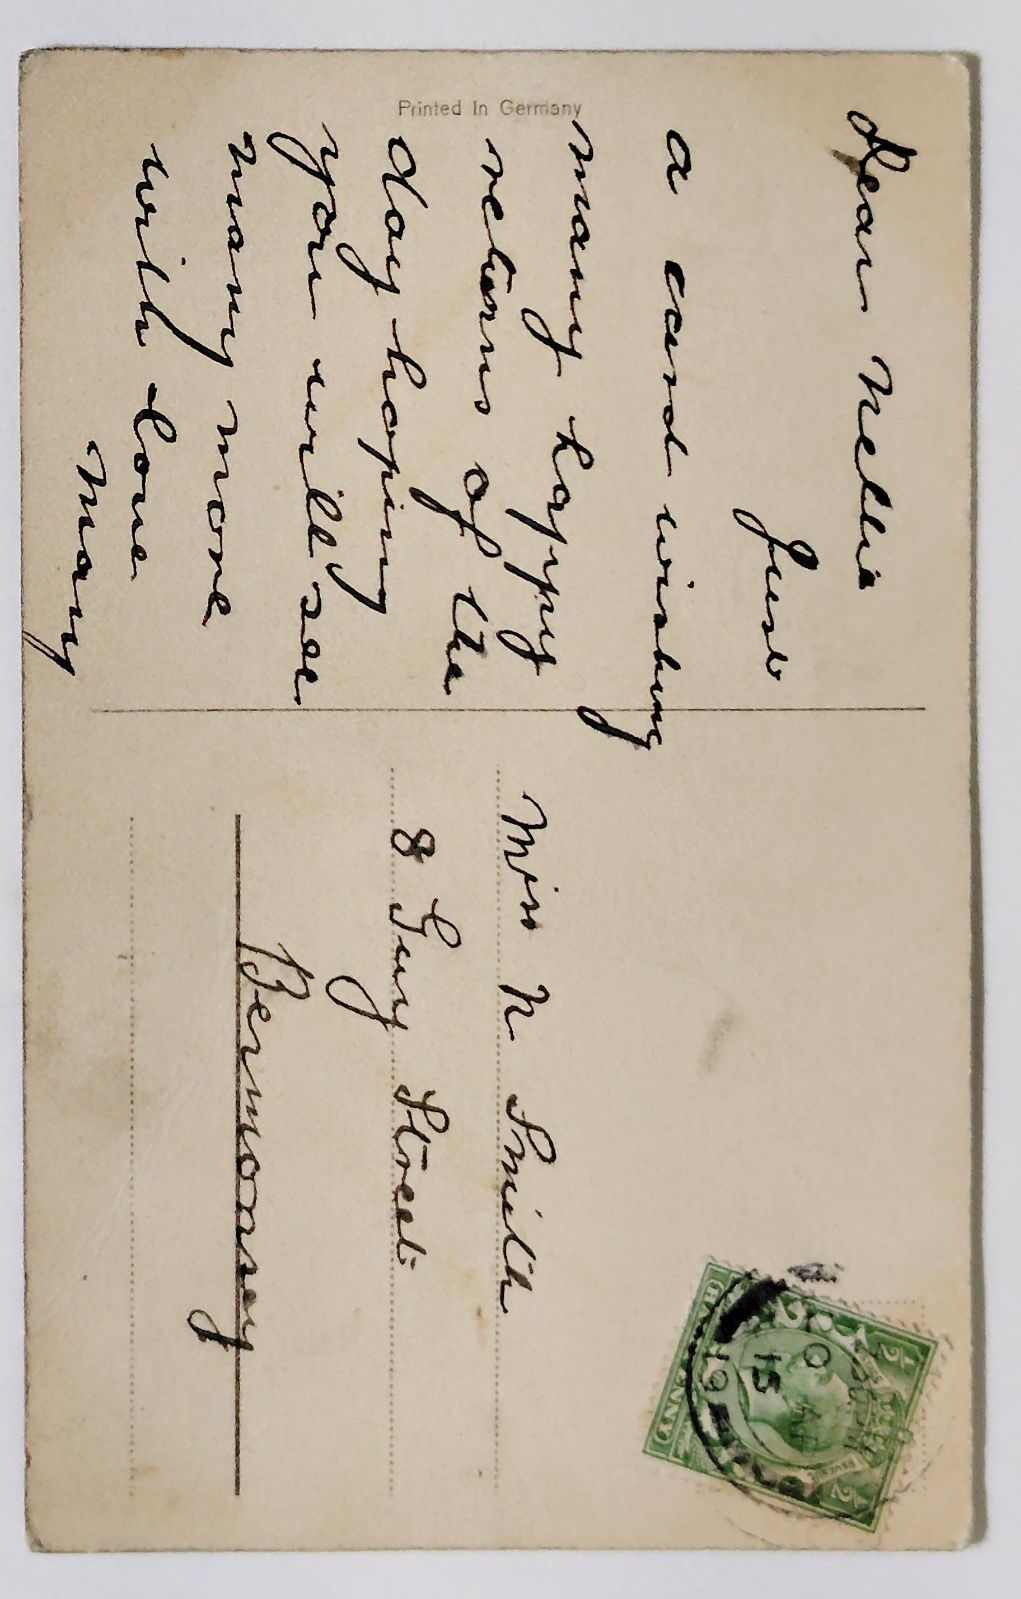 Printed In Germany
Dear Nellie
Just
a card wishing
many happy
returns of the
day hoping
you will see
many more
with love
May
Miss N Smith
8 Guy Street
Bermonsey
½ ½
15
19